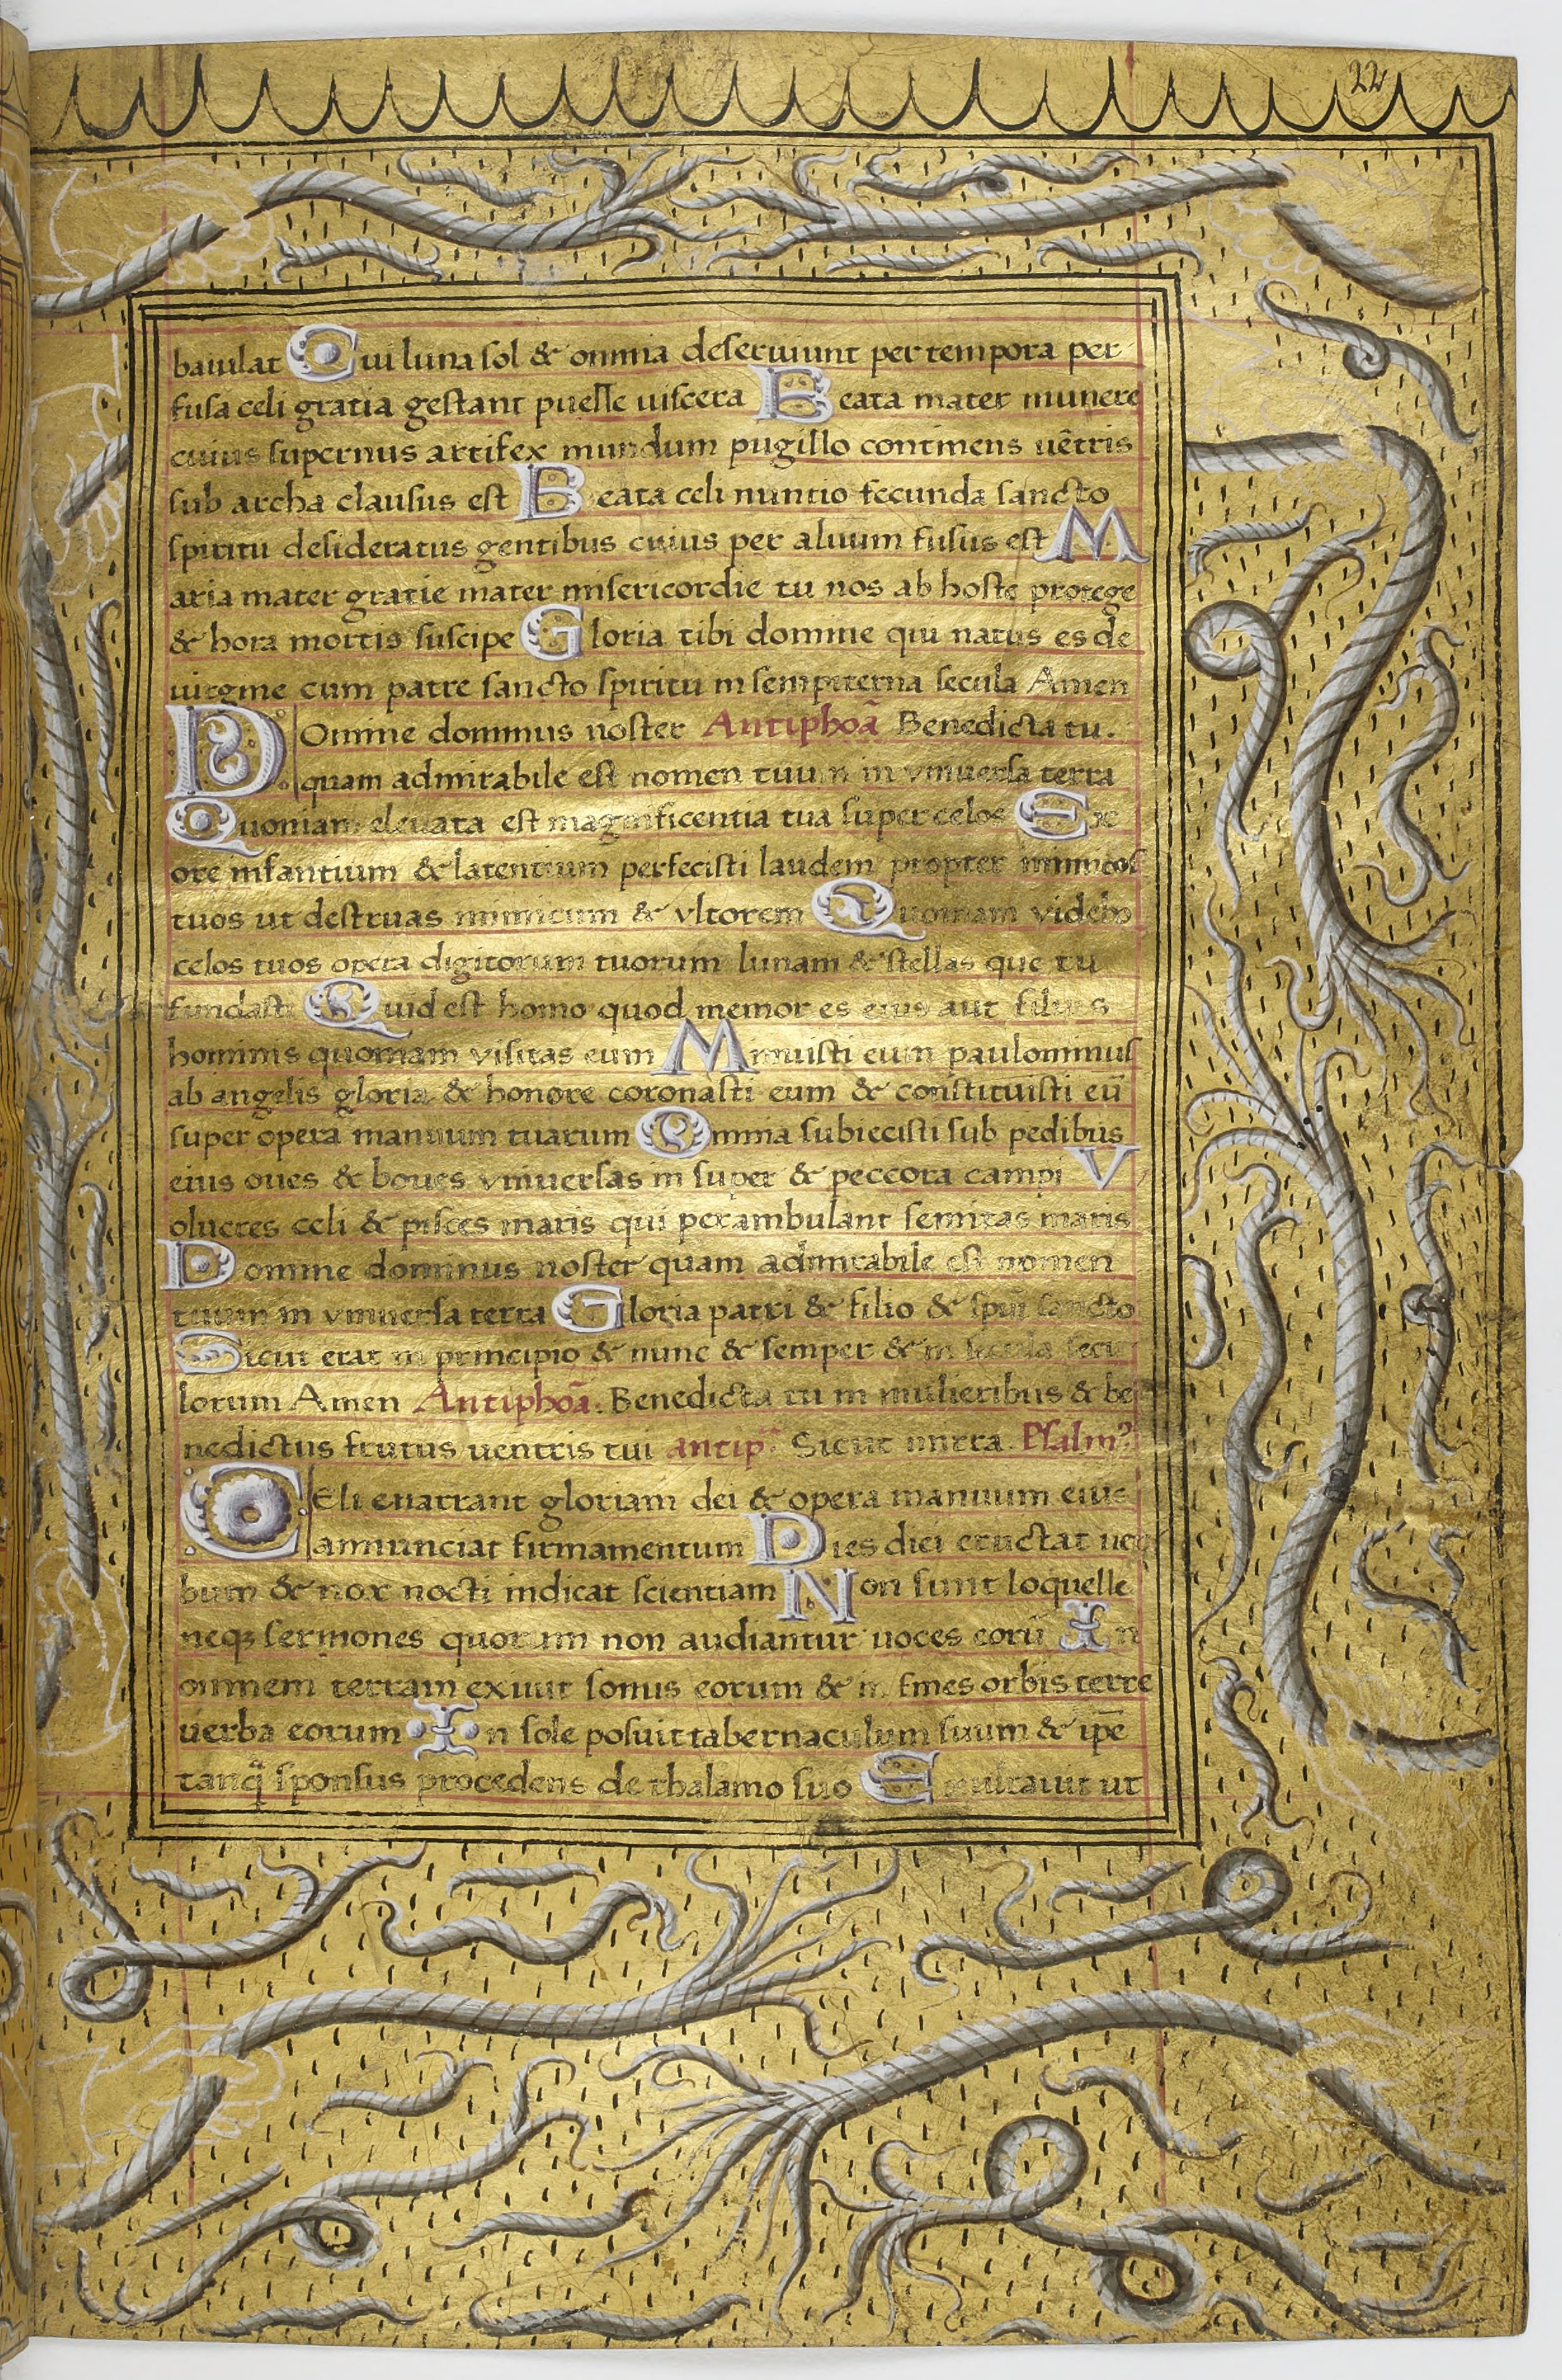 22
baiulat Cui luna sol & omnia deseruiunt per tempora per
fusa celi gratia gestant puelle uiscera Beata mater munere
cuius supernus artifex mundum pugillo continens uẽtris
sub archa clausus est Beata celi nuntio fecunda sancto
spiritu desideratus gentibus cuius per aluum fusus est M
aria mater gratie mater misericordie tu nos ab hoste protege
& hora mortis suscipe Gloria tibi domine qui natus es de
uirgine cum patre sancto spiritu in sempiterna secula Amen
DOmine dominus noster Antiphoã Benedicta tu.
quam admirabile est nomen tuum in vniuersa terra
Quoniam eleuata est magnificentia tua super celos Ex
ore infantium & latentium perfecisti laudem propter inimicos
tuos ut destruas inimicum & vltorem Quoniam videbo
celos tuos opera digitorum tuorum lunam & stellas que tu
fundasti Quid est homo quod memor es eius aut filius
hominis quoniam visitas eum Minuisti eum paulominus
ab angelis gloria & honore coronasti eum & constituisti eũ
super opera manuum tuarum Omnia subiecisti sub pedibus
eius oues & boues vniuersas in super & peccora campi V
olucres celi & pisces maris qui perambulant semitas maris
Domine dominus noster quam admirabile est nomen
tuum in vniuersa terra Gloria patri & filio & spũi sancto
Sicut erat in principio & nunc & semper & in secula secu
lorum Amen Antiphoã. Benedicta tu in mulieribus & be
nedictus frutus uentris tui antip̃ Sicut mirra. Psalm⁹
CEli enarrant gloriam dei & opera manuum eius
annunciat firmamentum Dies diei eructat uer
bum & nox nocti indicat scientiam Non sunt loquelle
neqꝫ sermones quorum non audiantur uoces eorũ In
omnem terram exiuit sonus eorum & in fines orbis terre
uerba eorum In sole posuit tabernaculum suum & ip̃e
tanq̃ sponsus procedens de thalamo suo Exultauit ut